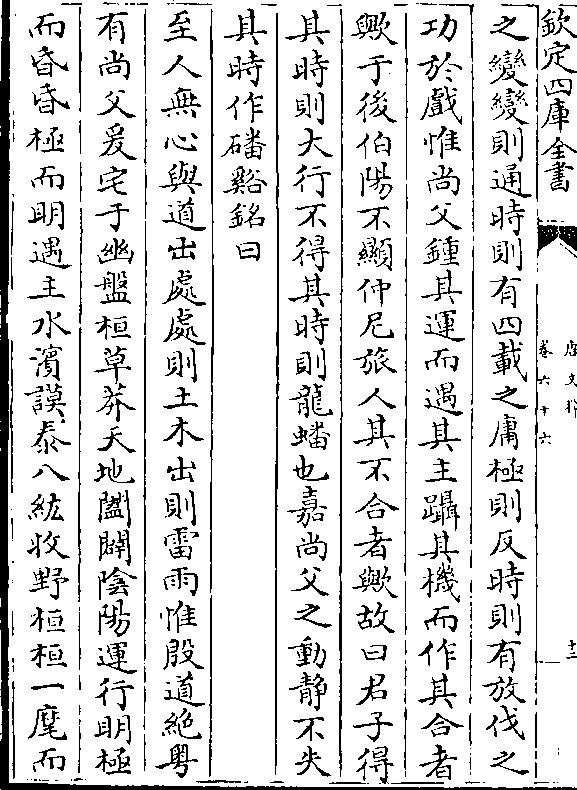 欽定四庫全書
唐文粹
卷六十六
十二
之變變則通時則有四載之庸極則反時則有放伐之
功於戲惟尚父鍾其運而遇其主躡其機而作其合者
歟于後伯陽不顯仲尼旅人其不合者歟故曰君子得
其時則大行不得其時則龍蟠也嘉尚父之動靜不失
其時作磻谿銘曰
至人無心與道出處處則土木出則雷雨惟殷道絶粤
有尚父爰宅于幽盤桓草莽天地闔闢陰陽運行明極
而昏昏極而明遇主水濱謨泰八紘收野桓桓一麾而